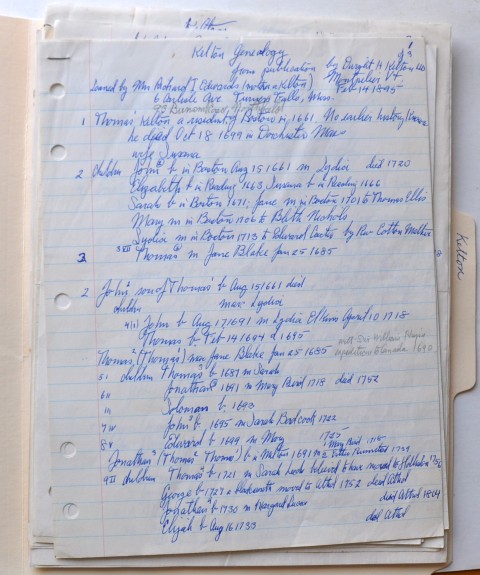 Kelton Genealogy
from publication by Dwight H Kelton
Montpelier Vt.
Loaned by Mrs Richard T. Edwards (mother a Kelton) Feb 14 1895
6 Carlisle Ave. Turners Falls, Mass.
1 Thomas Kelton a resident of Boston in 1661. No earlier history I have
he died Oct 18 1699 in Dorchester Mass
wife Susanna
2 children John b in Boston Aug 15 1661 m Lydia died 1720
Elizabeth b in Reading 1663, Susanna b in Reading 1666
Sarah b in Boston 1671; Jane m in Boston 1701 to Thomas Ellis
Mary m in Boston 1706 to Nichols
Lydia m in Boston 1713 to Edward Carter by Rev Cotton Mather
3 Thomas m Jane Blake Jan 25 1685
2 John son of Thomas b Aug 15 1661 died
children mar. Lydia
4(1) John b Aug 17 1691 m Lydia Elkins April 10 1718
Thomas b Feb 14 1694 d 1695
Thomas (Thomas) mar Jane Blake Jan 25 1685 with Sir William
expedition Canada 1690
5 i children Thomas b 1687 m Sarah
6 ii Jonathan 1691 m Mary Bird 1718 died 1752
iii Solomon b 1693
7 iv John b. 1695 m Sarah Badcock 1722
8 v Edward b 1699 m Mary 1725
Jonathan (Thomas Thomas) b in 1691 m 1 Mary Bird 1718
1739
children Thomas b 1721 m Sarah moved to
George b 1727 a blacksmith moved to Athol 1752 died Athol
Jonathan b 1730 m Margaret died Athol 1804
Elijah b Aug 16 1733 died Athol
Kelton